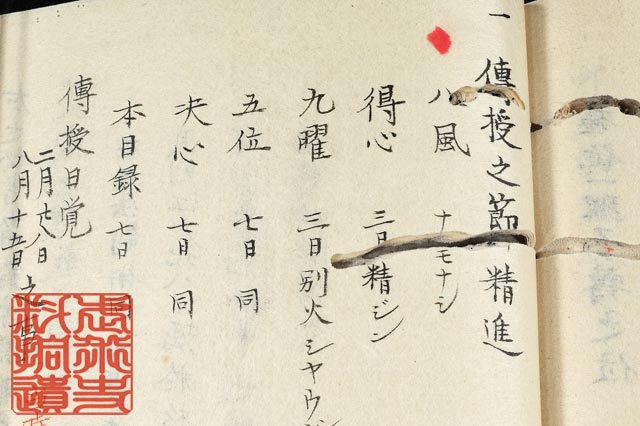 一 傳授之節精進
八風 ナニモナシ
得心 三日精ジン
九曜 三日別火シヤウジ
五位 七日同
夬心 七日同
本目録 七日同
傳授日覚
二月廿八日
八月十五日